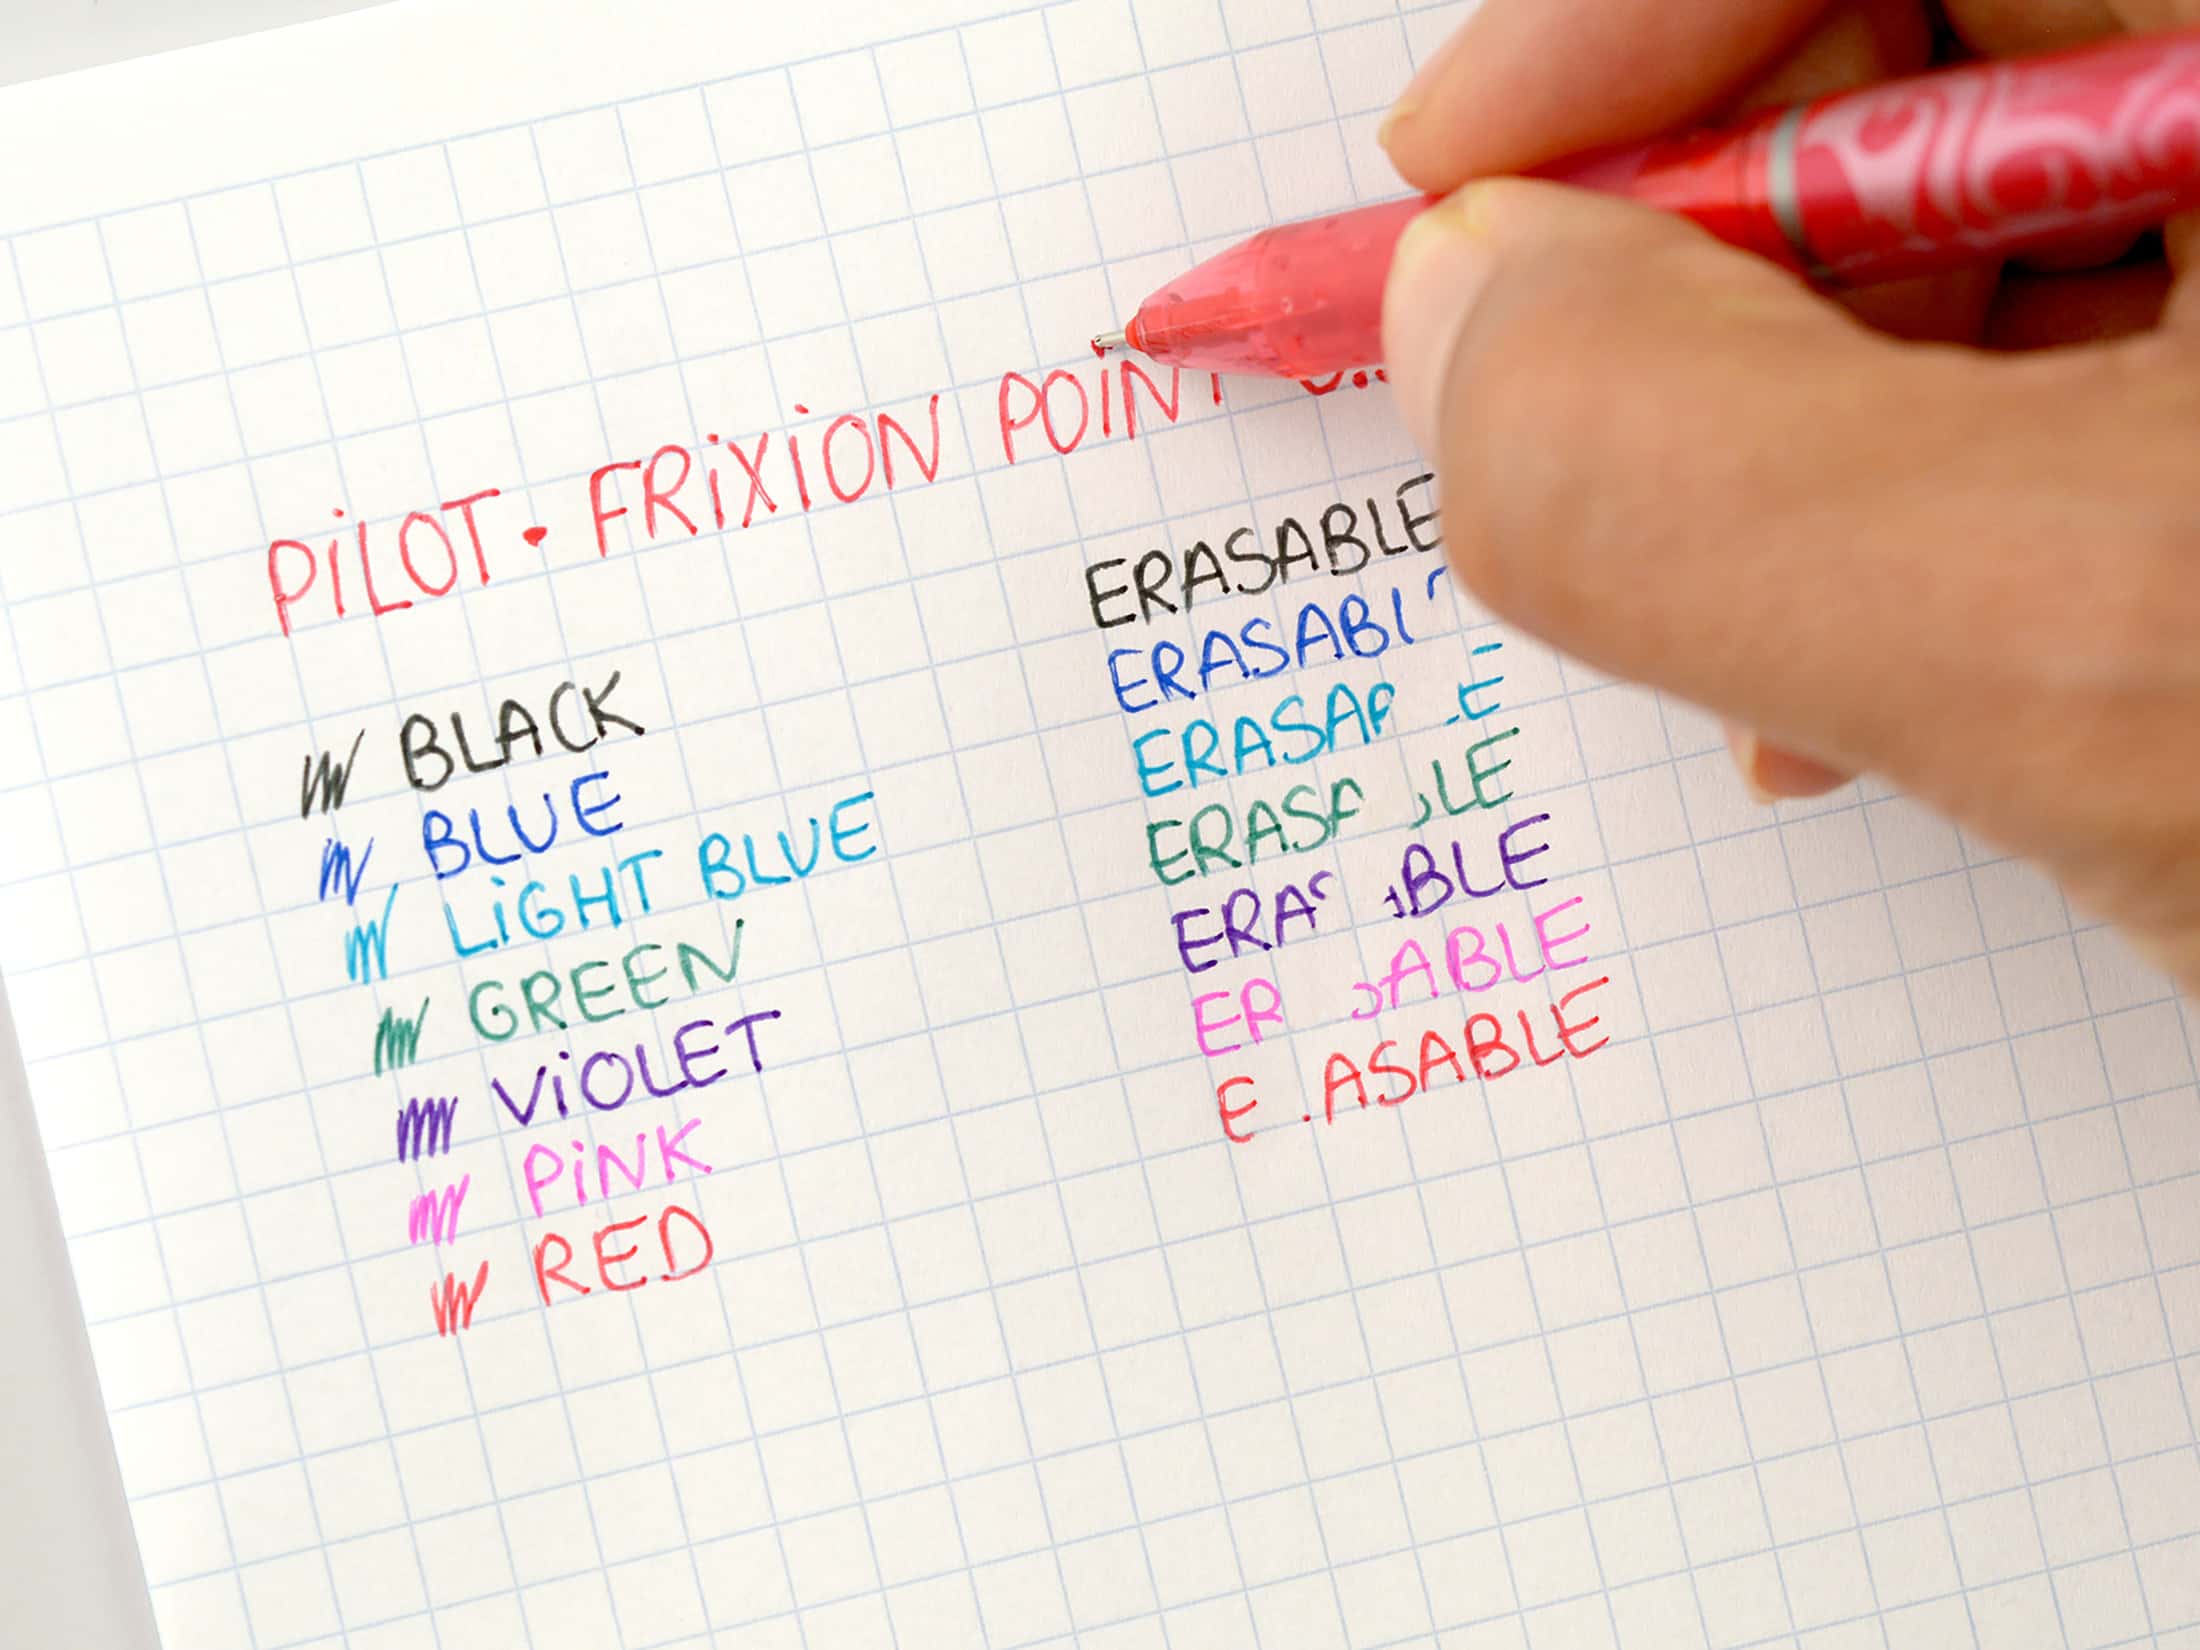 PiLOT · FRiXiON POINT
BLACK
BLUE
LiGHT BLUE
GREEN
ViOLET
PiNK
RED
ERASABLE
ERASABL
ERASAB LE
ERASA BLE
ERAS ABLE
ER SABLE
E ASABLE